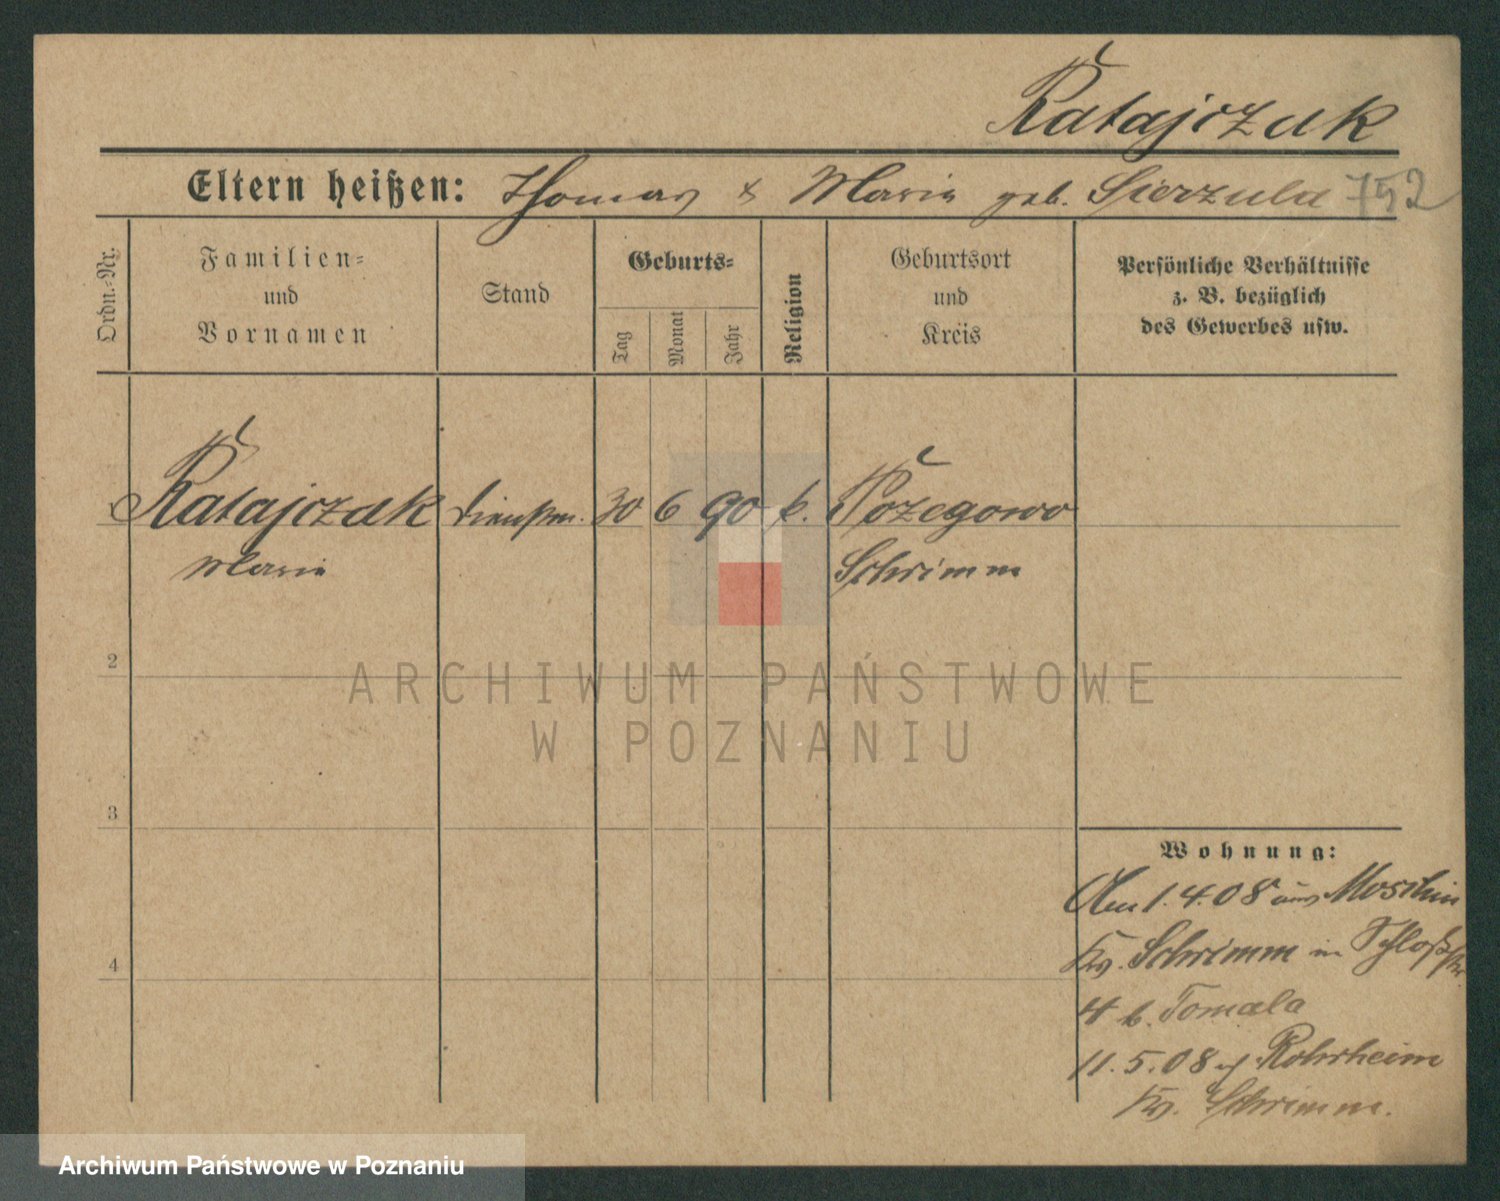 Ratajczak
Eltern heißen: Thomas & Marie geb. Sierzula 752
Ordn.-Nr.
Familien-
und
Vornamen
Stand
Geburts-
Tag
Monat
Jahr
Religion
Geburtsort
und
Kreis
Persönliche Verhältnisse
z. B. bezüglich
des Gewerbes usw.
1 Ratajczak Dienstm. 30 6 90 k. Pożegowo
Marie Schrimm
2
3
4
Wohnung:
Am 1.4.08 aus Moschin
Kr. Schrimm in Schloßstr
4 b. Tomala
11.5.08 n/ Rohrheim
Kr. Schrimm.
ARCHIWUM PAŃSTWOWE
W POZNANIU
Archiwum Państwowe w Poznaniu